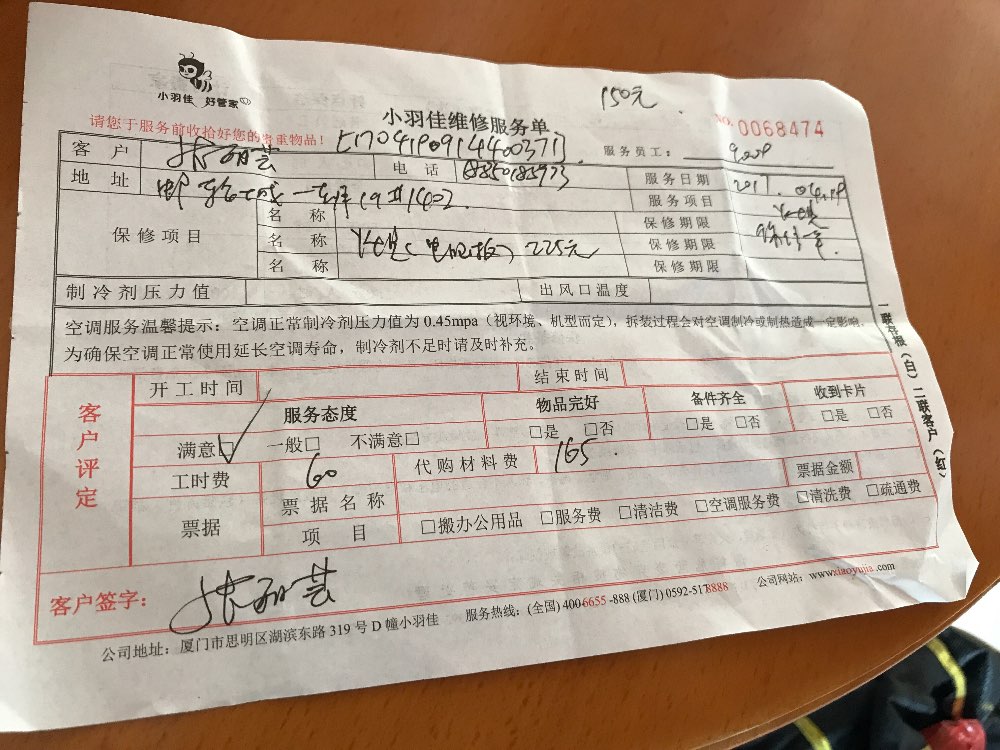 小羽佳 好管家
150元
小羽佳维修服务单
NO. 0068474
请您于服务前收拾好您的贵重物品！
[170419091440037]
服务员工：
客户 电话
地址 服务日期 2017.
服务项目
保修项目
名称 保修期限
名称 225元 保修期限
名称 保修期限
制冷剂压力值 出风口温度
空调服务温馨提示：空调正常制冷剂压力值为 0.45mpa（视环境、机型而定），拆装过程会对空调制冷或制热造成一定影响，
为确保空调正常使用延长空调寿命，制冷剂不足时请及时补充。
一联存根（白）二联客户（红）
客户评定
开工时间 结束时间
服务态度 物品完好 备件齐全 收到卡片
满意□ 一般□ 不满意□ □是 □否 □是 □否 □是 □否
工时费 60 代购材料费 165. 票据金额
票据 票据名称
项目 □搬办公用品 □服务费 □清洁费 □空调服务费 □清洗费 □疏通费
客户签字：
公司地址：厦门市思明区湖滨东路 319 号 D 幢小羽佳 服务热线：(全国) 4006655-888 (厦门) 0592-5178888 公司网站：www.xiaoyujia.com